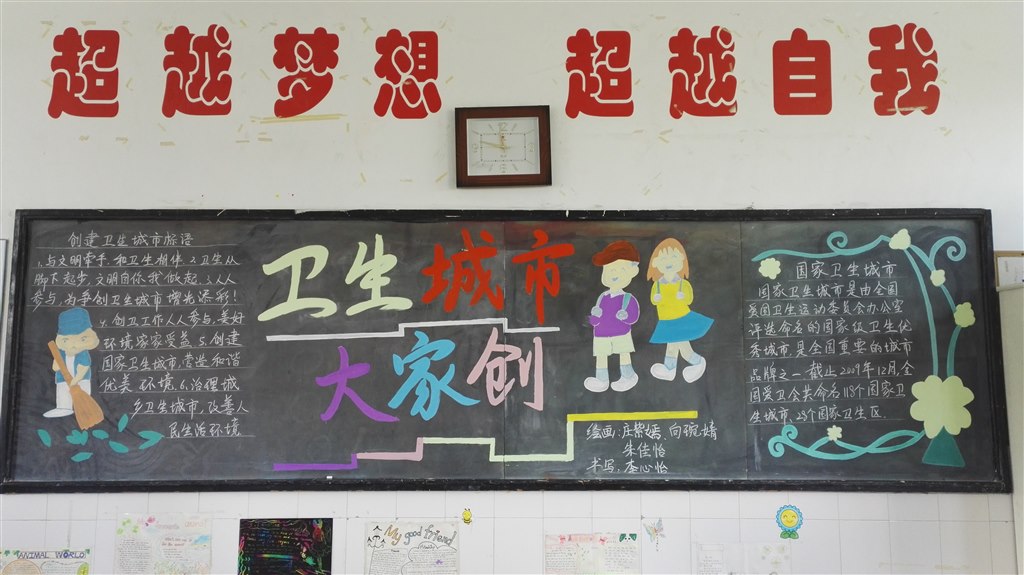 超越梦想 超越自我
创建卫生城市标语
1.与文明牵手,和卫生相伴.2.卫生从
脚下起步,文明由你我做起.3.人人
参与,为争创卫生城市增光添彩!
4.创卫工作人人参与,美好
环境家家受益.5.创建
国家卫生城市,营造和谐
优美环境.6.治理城
乡卫生城市,改善人
民生活环境.
卫生城市
大家创
绘画:庄紫嫣.向婉婧
朱佳怡
书写.李心怡
国家卫生城市
国家卫生城市是由全国
爱国卫生运动委员会办公室
评选命名的国家级卫生优
秀城市,是全国重要的城市
品牌之一.截止2009年12月,全
国爱卫会共命名118个国家卫
生城市,25个国家卫生区.
ANIMAL WORLD
My good friend